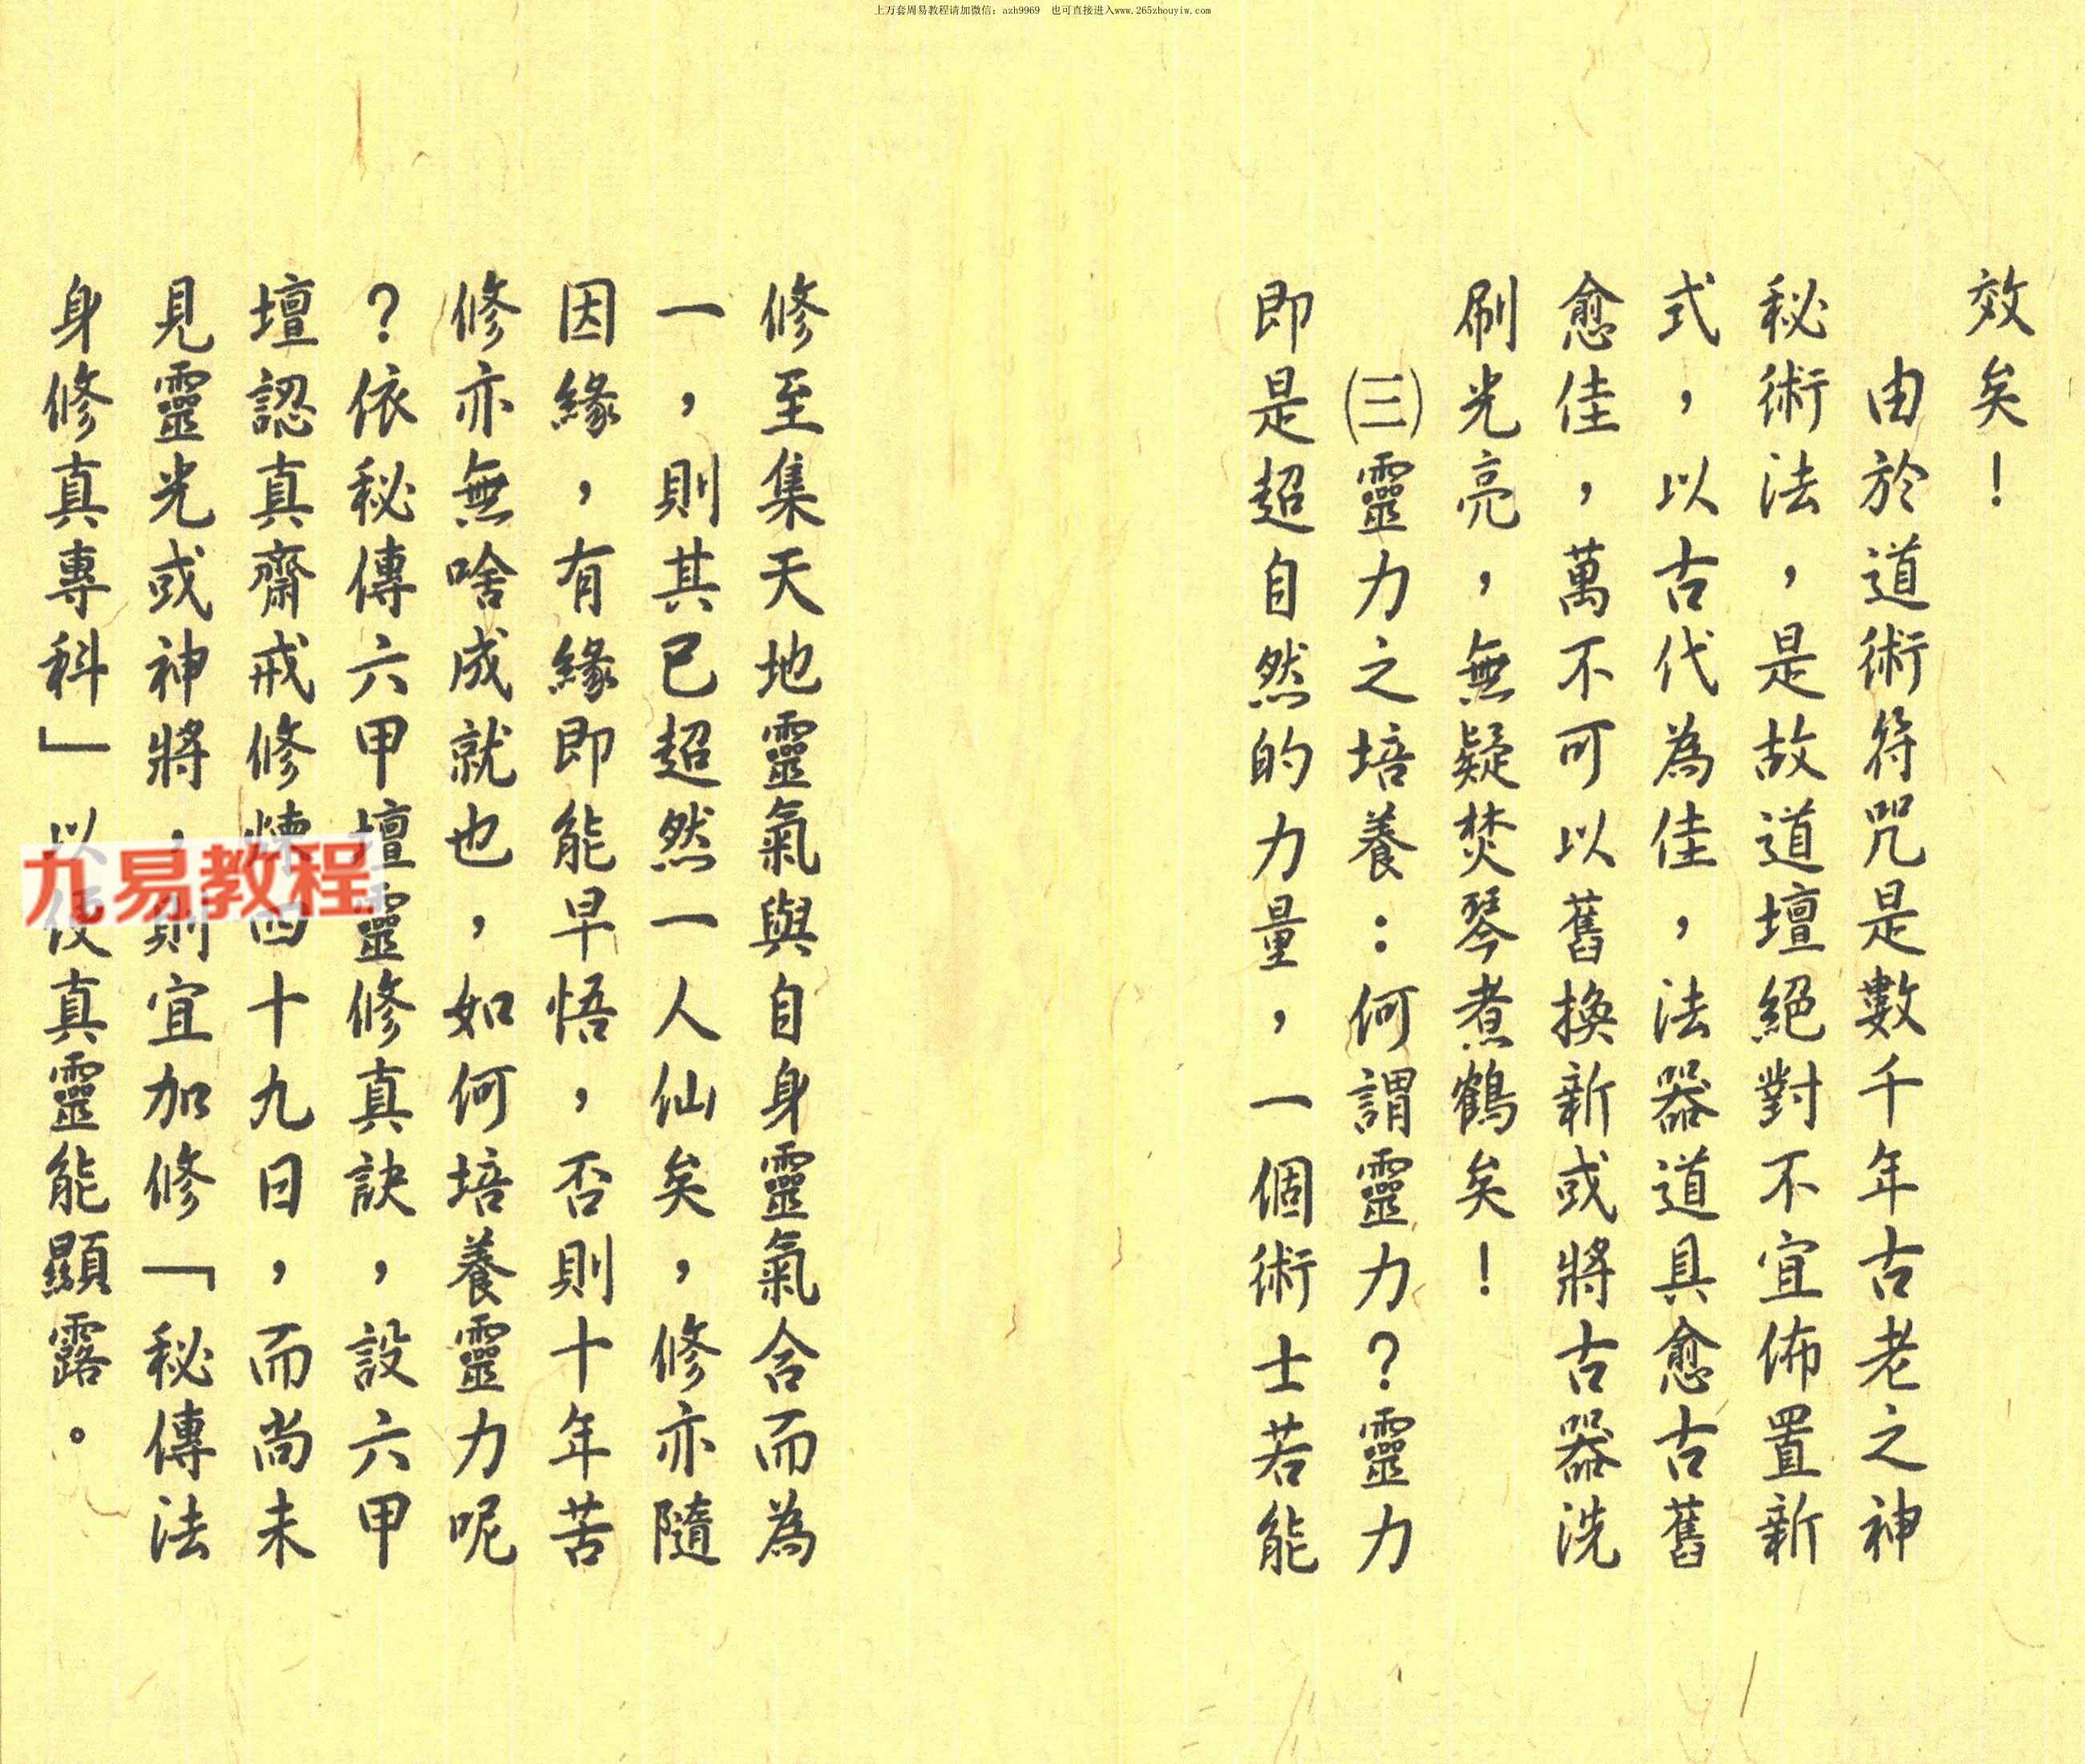 上万套周易教程请加微信：azh9969 也可直接进入www.265zhouyiw.com
效矣！
由於道術符咒是數千年古老之神
秘術法，是故道壇絕對不宜佈置新
式，以古代為佳，法器道具愈古舊
愈佳，萬不可以舊換新或將古器洗
刷光亮，無疑焚琴煮鶴矣！
㈢靈力之培養：何謂靈力？靈力
即是超自然的力量，一個術士若能
修至集天地靈氣與自身靈氣合而為
一，則其已超然一人仙矣，修亦隨
因緣，有緣即能早悟，否則十年苦
修亦無啥成就也，如何培養靈力呢
？依秘傳六甲壇靈修真訣，設六甲
壇認真齋戒修煉四十九日，而尚未
見靈光或神將，則宜加修「秘傳法
身修真專科」以使真靈能顯露。
九易教程